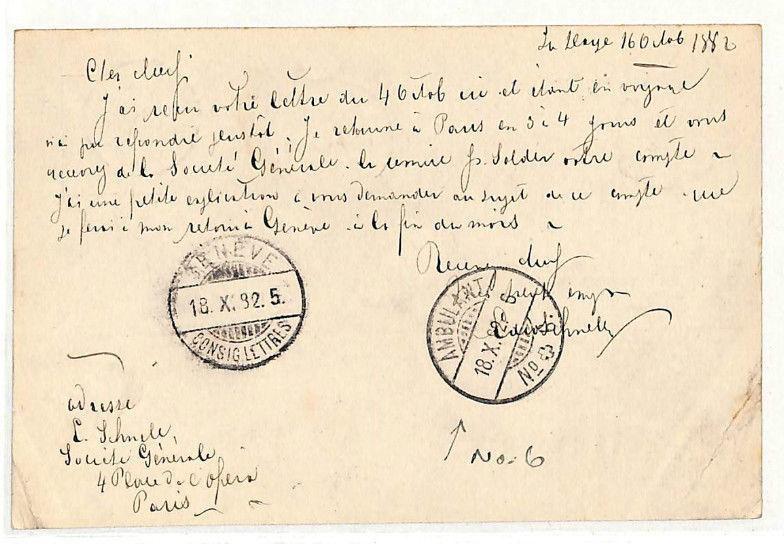 La Haye 16 Octob 1882
Cher Monsf
J'ai reçu votre lettre du 4 Octob ici et étant en voyage
n'ai pu repondre plustôt. Je retourne à Paris en 3 à 4 jours et vous
recevrez de la Société Générale la somme pr. Solder votre compte ~
J'ai une petite explication à vous demander au sujet de ce compte que
je ferai à mon retour à Genève à la fin du mois ~
Recevez Monsf
GENÈVE
18. X. 82. 5.
CONSIG. LETTRES
AMBULANT
18. X. 82
No 6
adresse
E. Schnele
Société Générale
4 Place de l'opéra
Paris
No. 6